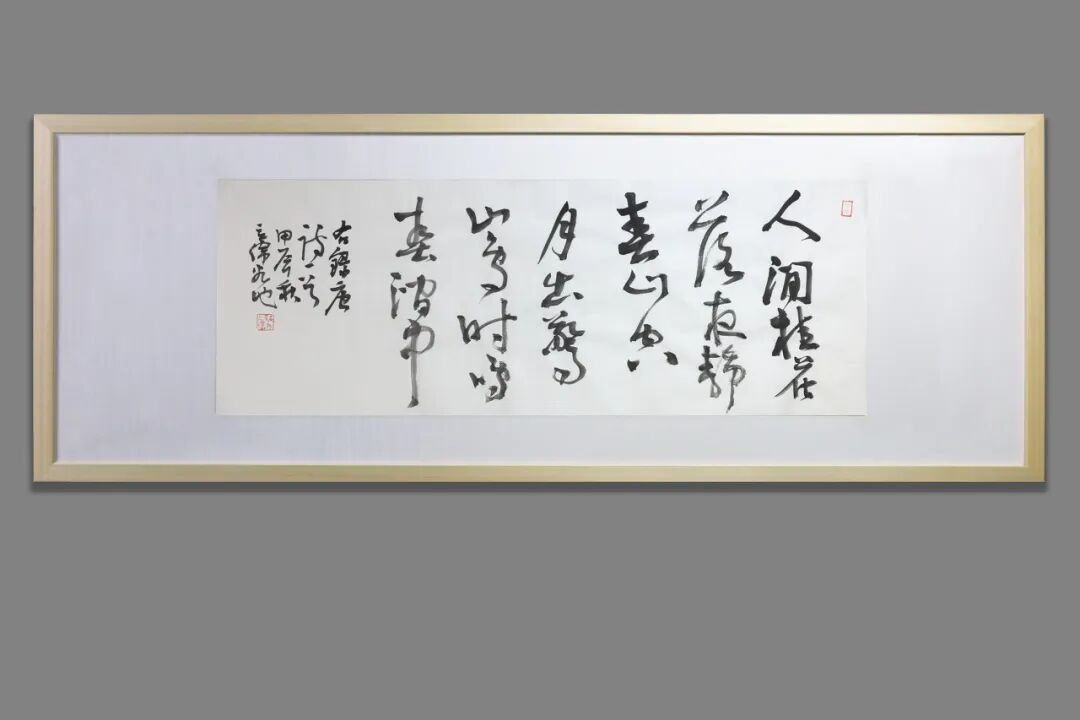 人閒桂花
落夜静
春山空
月出驚
山鸟时鸣
春澗中
右録唐
诗一首
甲辰秋